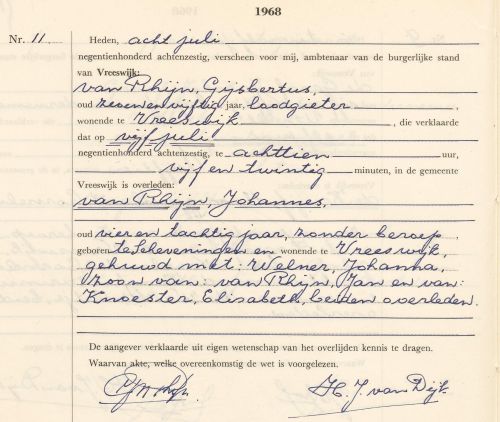 1968
Nr. 11
Heden, acht juli
negentienhonderd achtenzestig, verscheen voor mij, ambtenaar van de burgerlijke stand
van Vreeswijk:
van Rhijn, Gijsbertus,
oud zevenenvijftig jaar, loodgieter,
wonende te Vreeswijk, die verklaarde
dat op vijf juli
negentienhonderd achtenzestig, te achttien uur,
vijfentwintig minuten, in de gemeente
Vreeswijk is overleden:
van Rhijn, Johannes,
oud vierentachtig jaar, zonder beroep,
geboren te Scheveningen en wonende te Vreeswijk,
gehuwd met: Welner, Johanna,
zoon van: van Rhijn, Jan en van:
Knoester, Elisabeth, beiden overleden.
De aangever verklaarde uit eigen wetenschap van het overlijden kennis te dragen.
Waarvan akte, welke overeenkomstig de wet is voorgelezen.
H. J. van Dijk